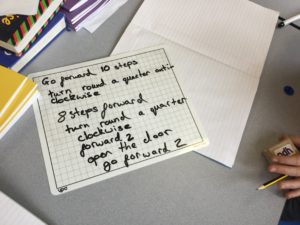 Go forward 10 steps
turn round a quarter anti
clockwise
8 steps forward
turn round a quarter
clockwise
forward 2
open the door
go forward 2